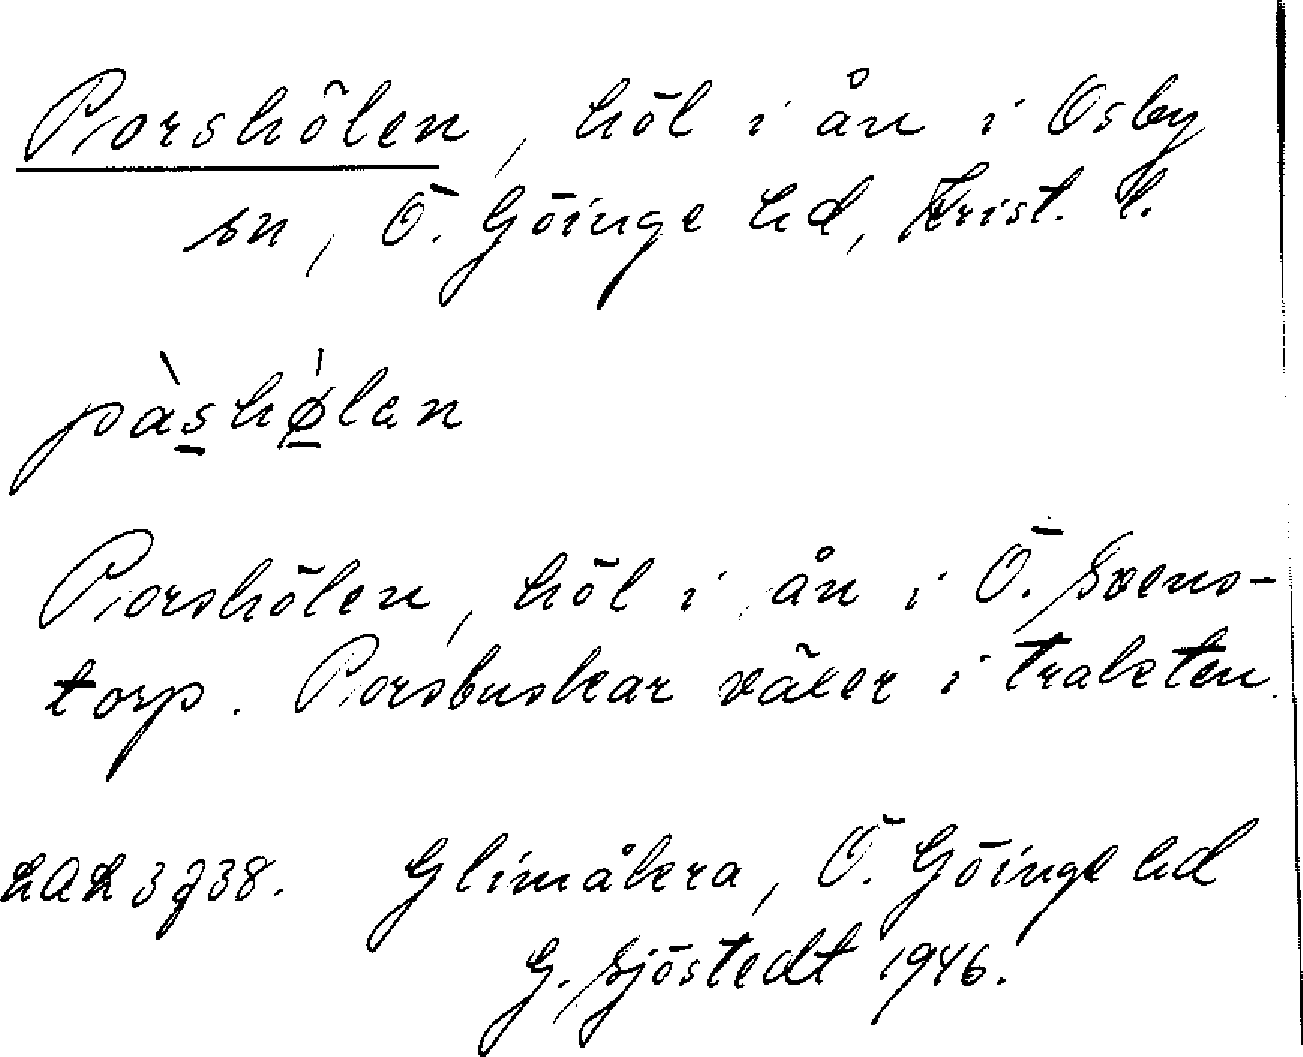 Porshölen, höl i ån i Osby
sn, Ö. Göinge hd, Krist. l.
pàshǿlan
Porshölen, höl i ån i Ö. Svens-
torp. Porsbuskar växer i trakten.
LAL 3738. Glimåkra, Ö. Göinge hd
G. Sjöstedt 1946.